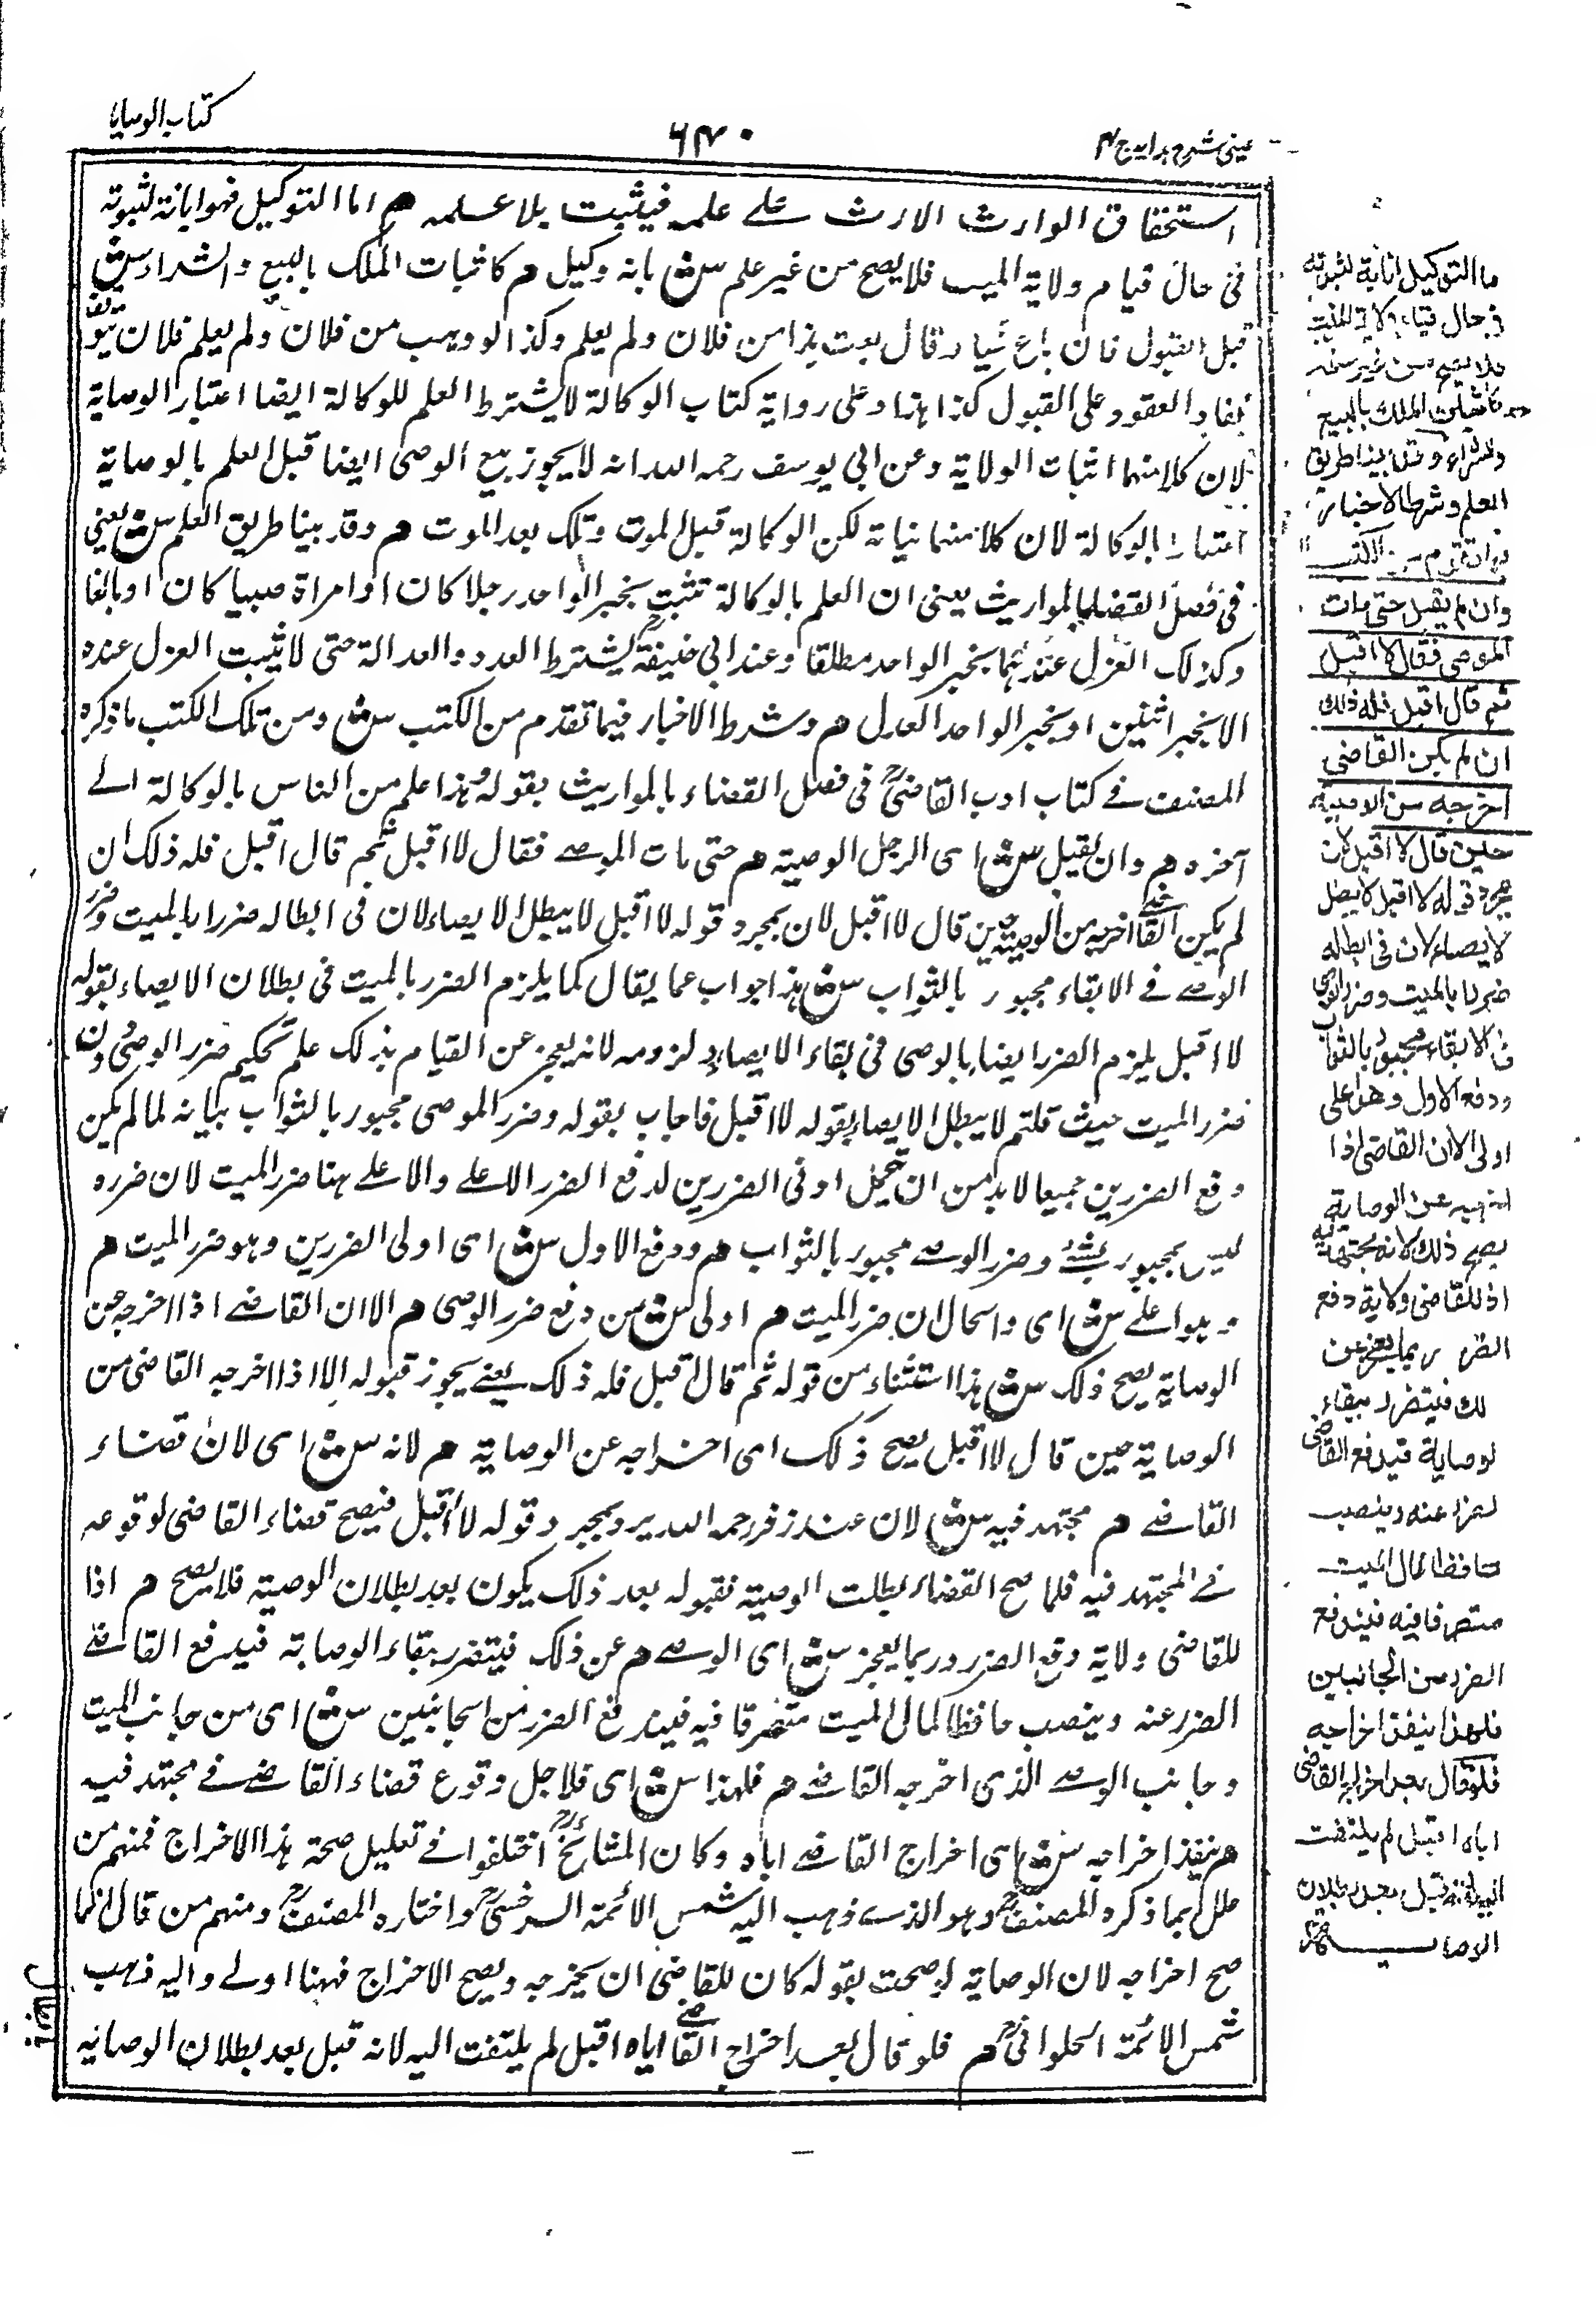 كتاب الوصايا
٦٤٠
عيني شرح هدايه ج ٤
استحقاق الوارث الارث على علمه فيثبت بلا علمه م اما التوكيل فهو انابة لثبوته
في حال قيام ولاية الميت فلا يصح من غير علم ش بانه وكيل م كاثبات الملك بالبيع والشراء ش
قبل القبول فان باع شيأ وقال بعت هذا من فلان ولم يعلم وكذا لو وهب من فلان ولم يعلم فلان يتوقف
نفاذ العقود على القبول كذا هذا وعلى رواية كتاب الوكالة لا يشترط العلم للوكالة ايضا اعتبار الوصاية
لان كلا منهما اثبات الولاية وعن ابي يوسف رحمه الله انه لا يجوز بيع الوصي ايضا قبل العلم بالوصاية
اعتبارا بالوكالة لان كلا منهما نيابة لكن الوكالة قبل الموت وتلك بعد الموت م وقد بينا طريق العلم ش يعني
في فصل القضاء بالمواريث يعني ان العلم بالوكالة تثبت بخبر الواحد رجلا كان او امراة صبيا كان او بالغا
وكذلك العزل عندهما بخبر الواحد مطلقا وعند ابي حنيفة يشترط العدد والعدالة حتى لا يثبت العزل عنده
الا بخبر اثنين او بخبر الواحد العدل م وشرط الاخبار فيما تقدم من الكتب ش ومن تلك الكتب ما ذكره
المصنف في كتاب ادب القاضي في فصل القضاء بالمواريث بقوله وهذا علم من الناس بالوكالة الى
آخره م وان لم يقبل ش اي الرجل الوصية م حتى مات الموصي فقال لا اقبل ثم قال اقبل فله ذلك ان
لم يكن القاضي اخرجه من الوصية حين قال لا اقبل لان بمجرد قوله لا اقبل لا يبطل الايصاء لان في ابطاله ضررا بالميت وضرر
الوصي في الابقاء مجبور بالثواب ش هذا جواب عما يقال كما يلزم الضرر بالميت في بطلان الايصاء بقوله
لا اقبل يلزم الضرر ايضا بالوصي في بقاء الايصاء ولزومه لانه يعجز عن القيام بذلك علم تحكيم ضرر الوصي دون
ضرر الميت حيث قلتم لا يبطل الايصاء بقوله لا اقبل فاجاب بقوله وضرر الموصي مجبور بالثواب بيانه لما لم يكن
دفع الضررين جميعا لا بد من ان يتحمل ادنى الضررين لدفع الضرر الاعلى والاعلى هنا ضرر الميت لان ضرره
ليس بمجبور بشئ وضرر الوصي مجبور بالثواب م ودفع الاول ش اي اولى الضررين وهو ضرر الميت م
وهو اعلى ش اي والحال ان ضرر الميت م اولى ش من دفع ضرر الوصي م الا ان القاضي اذا اخرجه عن
الوصاية يصح ذلك ش هذا استثناء من قوله ثم قال اقبل فله ذلك يعني يجوز قبوله الا اذا اخرجه القاضي من
الوصاية حين قال لا اقبل يصح ذلك اي اخراجه عن الوصاية م لانه ش اي لان قضاء
القاضي م مجتهد فيه ش لان عند زفر رحمه الله يرد بمجرد قوله لا اقبل فيصح قضاء القاضي لوقوعه
في المجتهد فيه فلما صح القضاء بطلت الوصية فقبوله بعد ذلك يكون بعد بطلان الوصية فلا يصح م اذا
للقاضي ولاية دفع الضرر وربما يعجز ش اي الوصي م عن ذلك فيتضرر ببقاء الوصاية فيدفع القاضي
الضرر عنه وينصب حافظا لمال الميت متصرفا فيه فيندفع الضرر من الجانبين ش اي من جانب الميت
وجانب الوصي الذي اخرجه القاضي م فلهذا ش اي فلاجل وقوع قضاء القاضي في مجتهد فيه
م ينفذ اخراجه ش اي اخراج القاضي اياه وكان المشائخ اختلفوا في تعليل صحة هذا الاخراج فمنهم من
علل بما ذكره المصنف وهو الذي ذهب اليه شمس الائمة السرخسي واختاره المصنف ومنهم من قال انما
صح اخراجه لان الوصاية لو صحت بقوله كان للقاضي ان يخرجه ويصح الاخراج فههنا اولى واليه ذهب
شمس الائمة الحلواني م فلو قال بعد اخراج القاضي اياه اقبل لم يلتفت اليه لانه قبل بعد بطلان الوصاية
ما التوكيل انابة لثبوته
في حال قيام ولاية الميت
فلا يصح من غير علمه
كاثبات الملك بالبيع
والشراء وقد بينا طريق
العلم وشرط الاخبار
فيما تقدم من الكتب
وان لم يقبل حتى مات
الموصي فقال لا اقبل
ثم قال اقبل فله ذلك
ان لم يكن القاضي
اخرجه من الوصية
حين قال لا اقبل لان
بمجرد قوله لا اقبل لا يبطل
الايصاء لان في ابطاله
ضررا بالميت وضرر الوصي
في الابقاء مجبور بالثواب
ودفع الاول وهو اعلى
اولى الا ان القاضي اذا
اخرجه عن الوصاية
يصح ذلك لانه مجتهد فيه
اذ للقاضي ولاية دفع
الضرر وربما يعجز عن
ذلك فيتضرر ببقاء
الوصاية فيدفع القاضي
الضرر عنه وينصب
حافظا لمال الميت
متصرفا فيه فيندفع
الضرر من الجانبين
فلهذا ينفذ اخراجه
فلو قال بعد اخراج القاضي
اياه اقبل لم يلتفت
اليه لانه قبل بعد بطلان
الوصاية